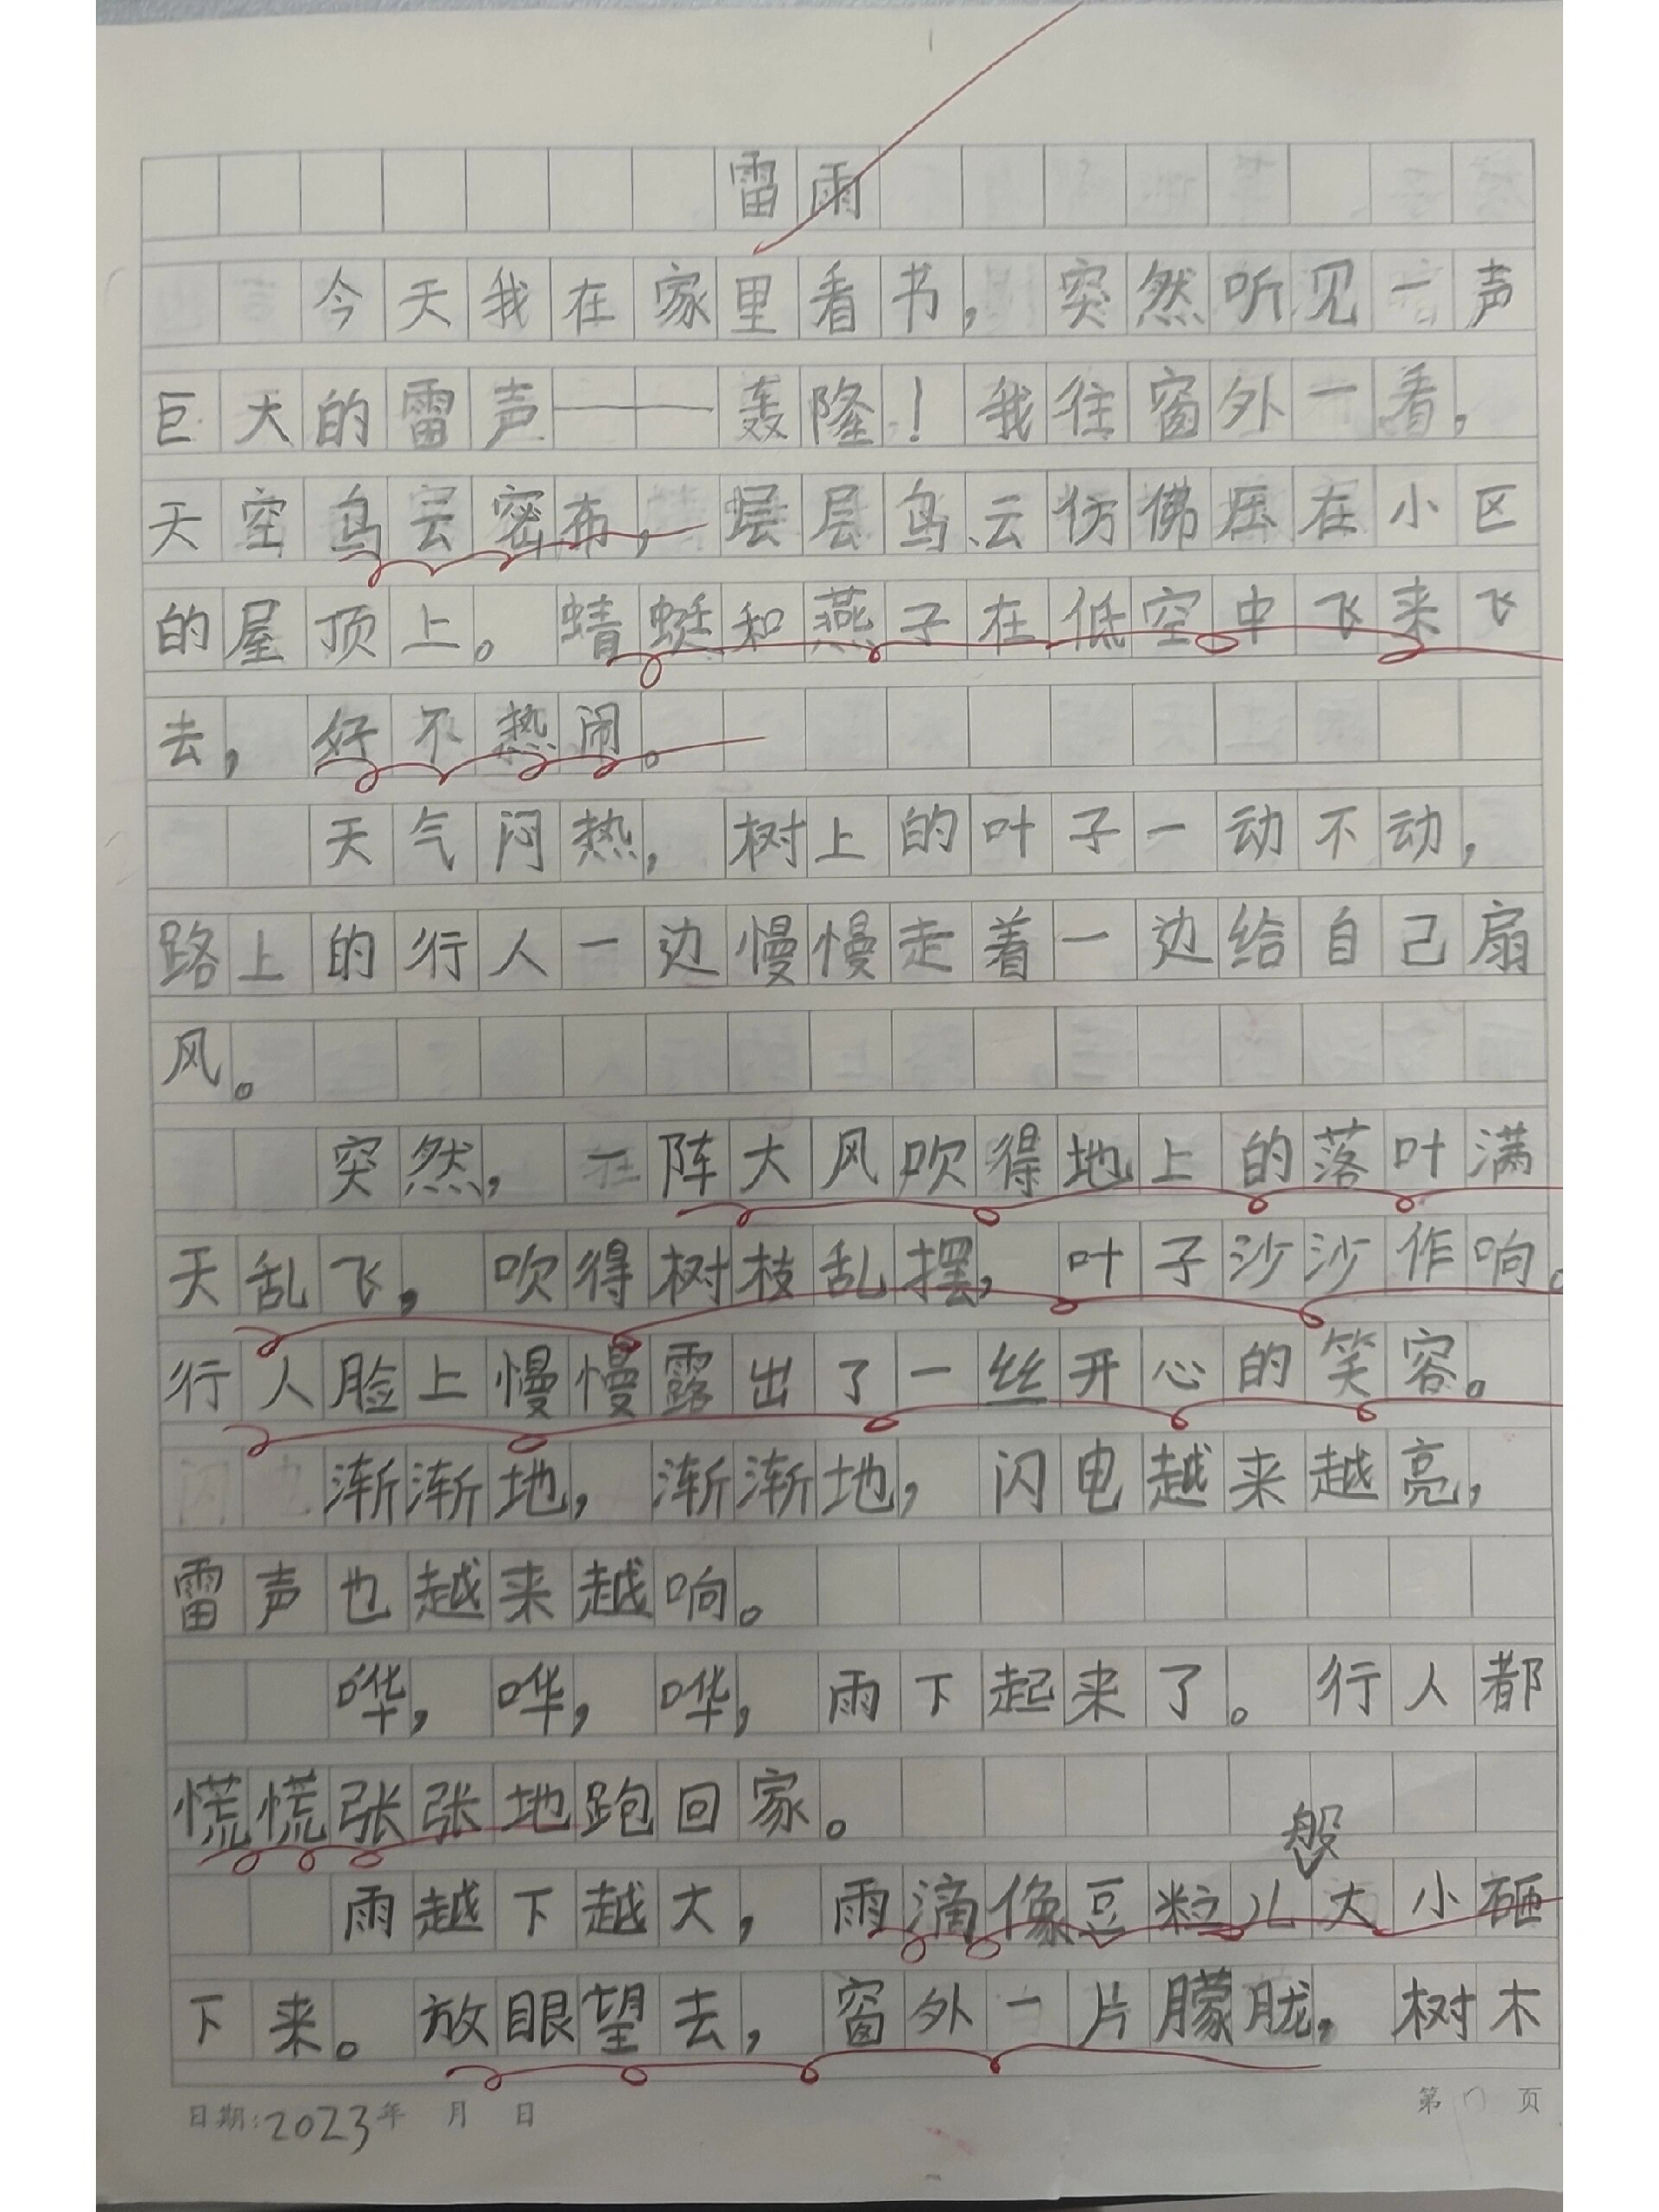 雷雨
今天我在家里看书，突然听见一声
巨大的雷声——轰隆！我往窗外一看，
天空乌云密布，层层乌云仿佛压在小区
的屋顶上。蜻蜓和燕子在低空中飞来飞
去，好不热闹。
天气闷热，树上的叶子一动不动，
路上的行人一边慢慢走着一边给自己扇
风。
突然，一阵大风吹得地上的落叶满
天乱飞，吹得树枝乱摆，叶子沙沙作响。
行人脸上慢慢露出了一丝开心的笑容。
渐渐地，渐渐地，闪电越来越亮，
雷声也越来越响。
哗，哗，哗，雨下起来了。行人都
慌慌张张地跑回家。
雨越下越大，雨滴像豆粒儿般大小砸
下来。放眼望去，窗外一片朦胧，树木
日期:2023年 月 日 第 页